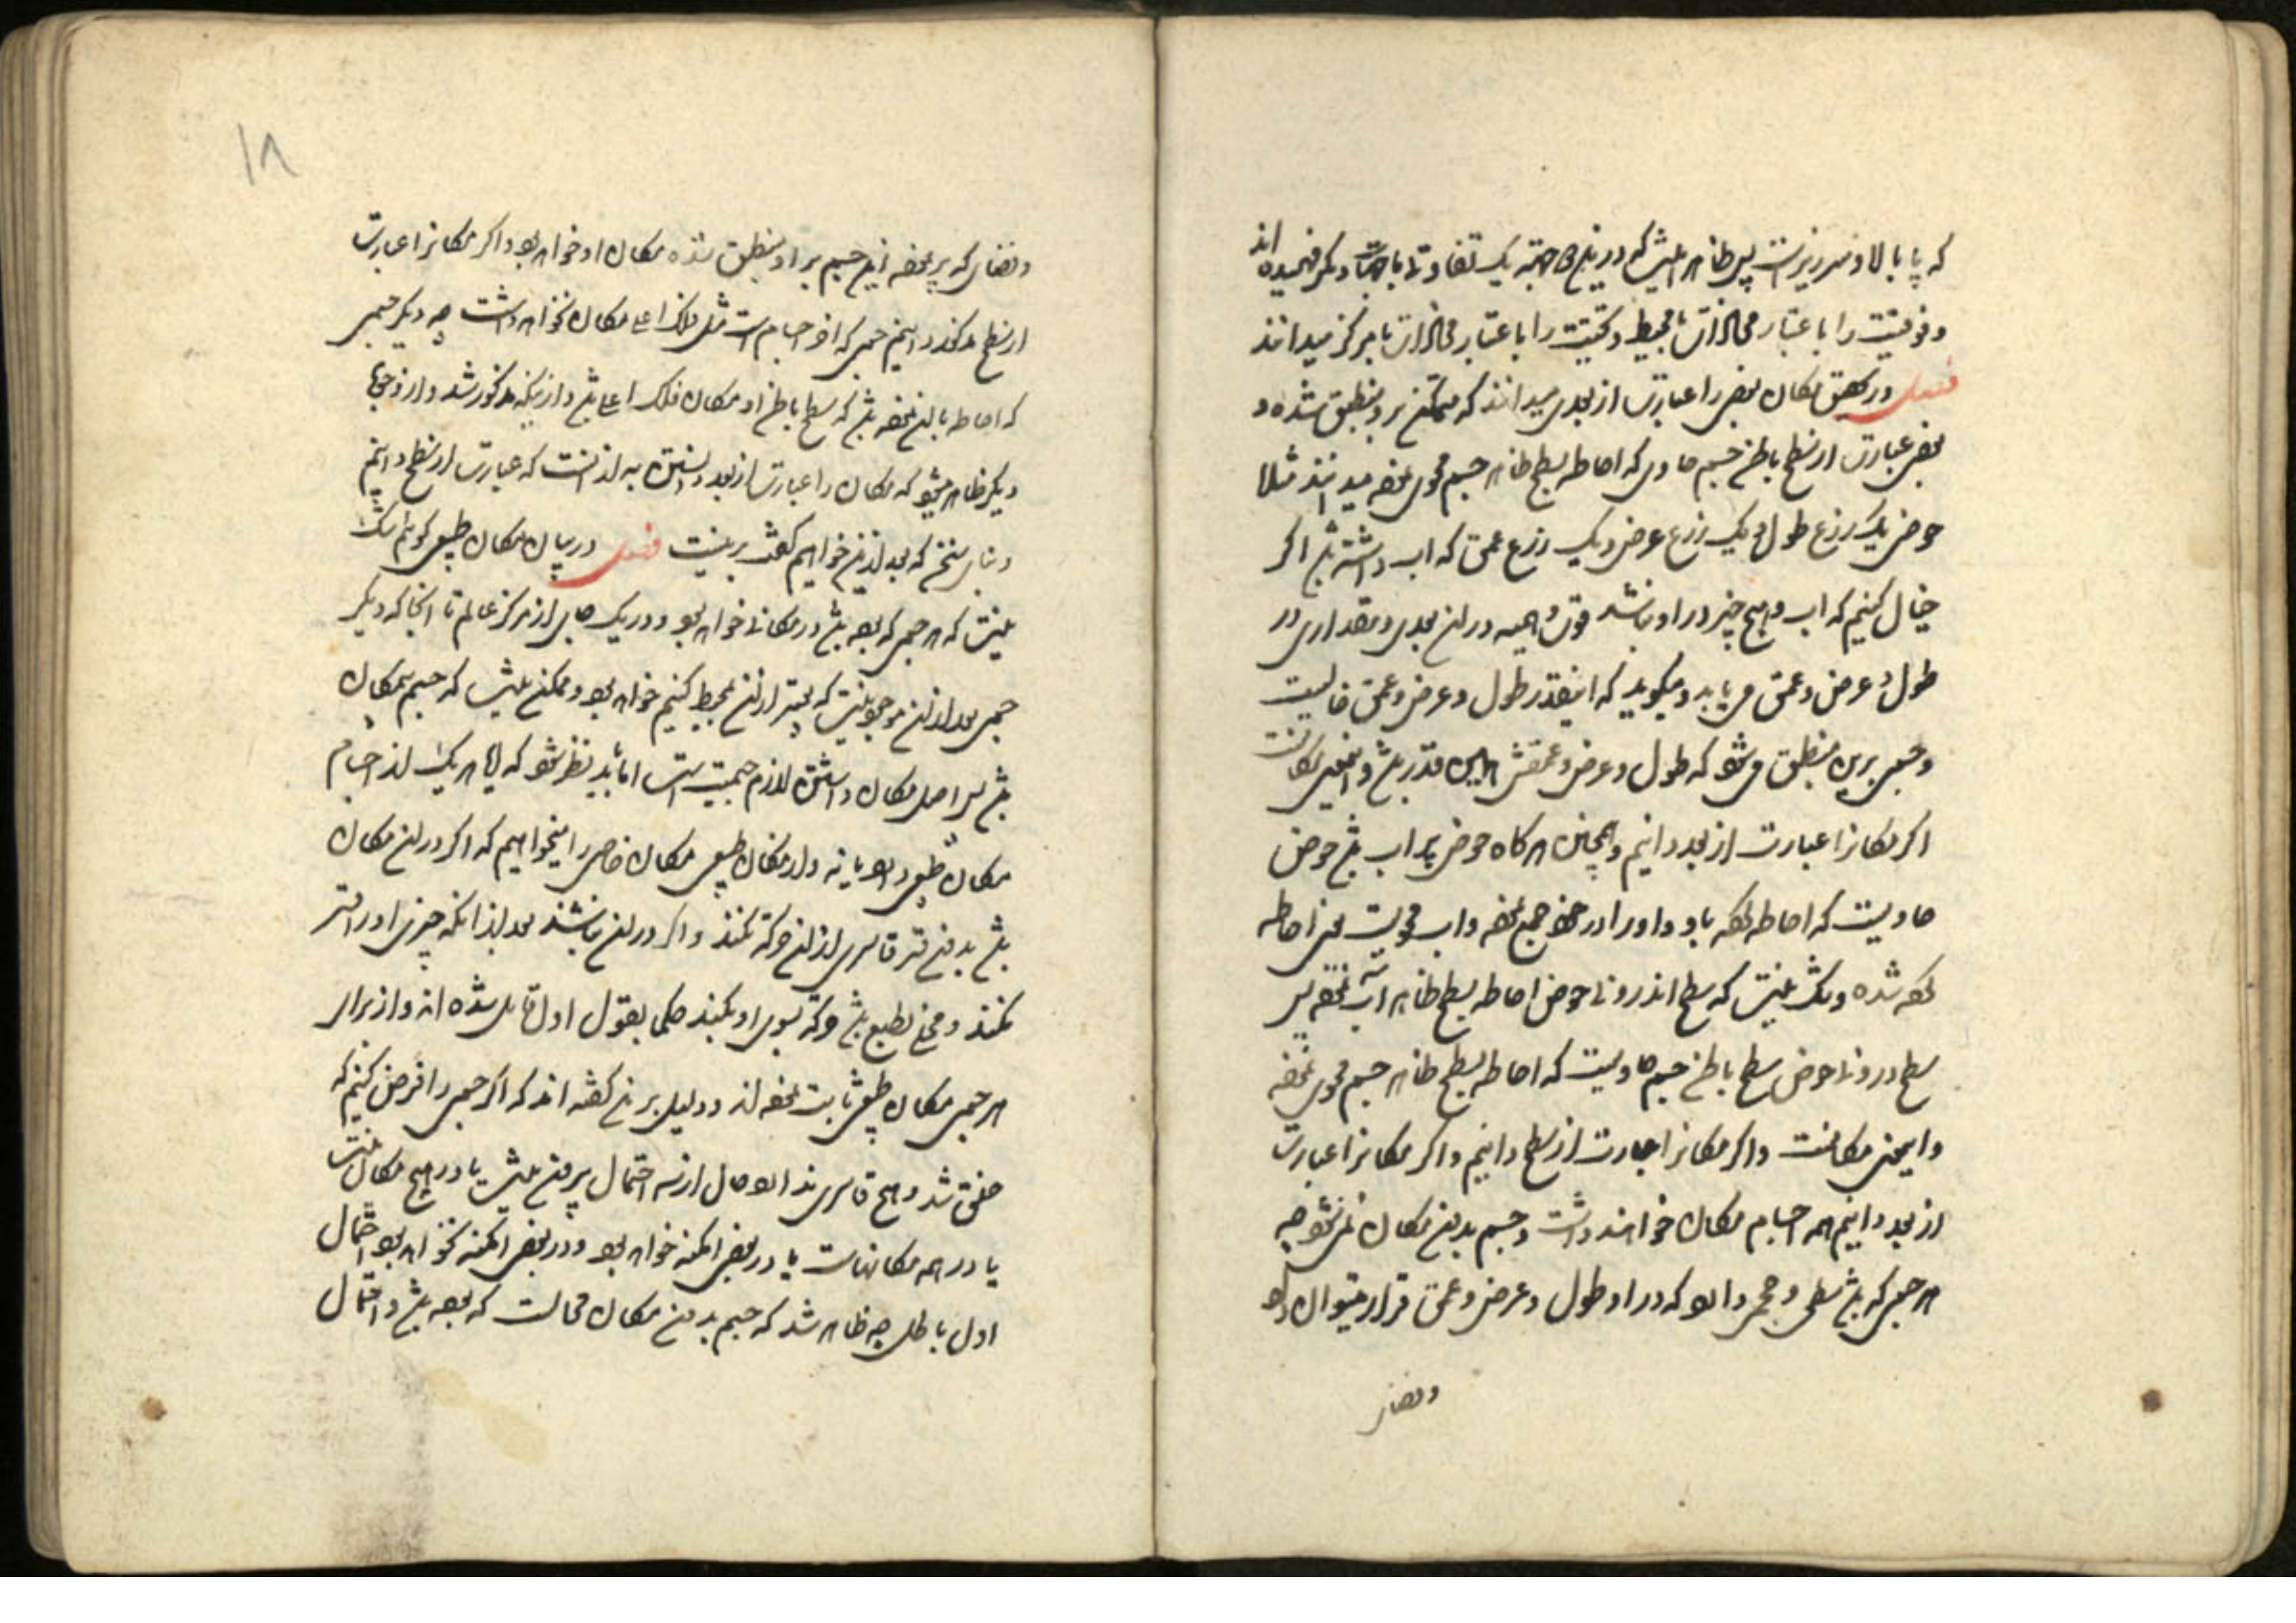 که پا بالا و سر زیرست پس ظاهر میشود که درین دو جهته یک تفاوتی با جهات دیگر فهمیده اند
و فوقیت را باعتبار محاذات با محیط و تحتیت را باعتبار محاذات با مرکز میدانند
فصل در تحقیق مکان بعضی را عبارت از بعدی میدانند که متمکن برو منطبق شده و
بعضی عبارت از سطح باطن جسم حاوی که احاطه بسطح ظاهر جسم محوی نموده میدانند مثلا
حوض یک زرع طول و یک زرع عرض و یک زرع عمق که اب داشته باشد اگر
خیال کنیم که اب و هیچ چیز در او نباشد قوت وهمیه در ان بعدی و مقداری در
طول و عرض و عمق می یابد و میگوید که اینقدر طول و عرض و عمق خالیست
و جسمی برین منطبق می شود که طول و عرض و عمقش همین قدر باشد و اینمعنی مکانست
اگر مکانرا عبارت از بعد دانیم و همچنین هرگاه حوض پر اب باشد حوض
حاویست که احاطه نموده باو و او را در خود جمع نموده و اب محویست یعنی احاطه
کرده شده و شک نیست که سطح اندرونی حوض احاطه بسطح ظاهر آب نموده پس
سطح درونی حوض سطح باطن جسم حاویست که احاطه بسطح ظاهر جسم محوی نموده
و اینمعنی مکانست و اگر مکانرا عبارت از سطح دانیم و اگر مکانرا عبارت
از بعد دانیم همه اجسام مکان خواهند داشت و جسم بدون مکان نمی شود چه
هر جسمی که باشد سطحی و حجمی دارد که در او طول و عرض و عمق قرار میتوان داد
و فضای
۱۸
و فضای که پر نموده این جسم بر او منطبق شده مکان او خواهد بود و اگر مکانرا عبارت
از سطح مذکور دانیم جسمی که اخر اجسام است مثل فلک اعلی مکان نخواهد داشت چه دیگر جسمی
که احاطه بان نموده باشد که سطح باطن او مکان فلک اعلی باشد و ازینکه مذکور شد و از وجهای
دیگر ظاهر میشود که مکان را عبارت از بعد دانستن به از انست که عبارت از سطح دانیم
و بنای سخن که بعد ازین خواهیم گفت برینست فصل در بیان مکان طبیعی گوئیم شک
نیست که هر جسمی که بوده باشد در مکانی خواهد بود و در یک جای از مرکز عالم تا انجا که دیگر
جسمی بعد از ان موجود نیست که تعبیر از ان بمحیط کنیم خواهد بود و ممکن نیست که جسم بیمکان
باشد پس اصل مکان داشتن لازم جسمیت است اما باید نظر نمود که ایا هر یک از اجسام
مکان طبیعی دارد یا نه و از مکان طبیعی مکان خاص را میخواهیم که اگر در ان مکان
باشد بدون قسر قاسری از ان حرکة نکند و اگر در ان نباشد بعد از انکه چیزی او را قسر
نکند و مخلی بطبع باشد حرکة بسوی او بکند حکما بقول اول قایل شده اند و از برای
هر جسمی مکان طبیعی ثابت نموده اند و دلیل برین گفته اند که اگر جسمی را فرض کنیم که
خلق شد و هیچ قاسری ندارد حال از سه احتمال بیرون نیست یا در هیچ مکان نیست
یا در همه مکانهاست یا در بعضی امکنه خواهد بود و در بعضی امکنه نخواهد بود احتمال
اول باطل چه ظاهر شد که جسم بدون مکان محالست که بوده باشد و احتمال